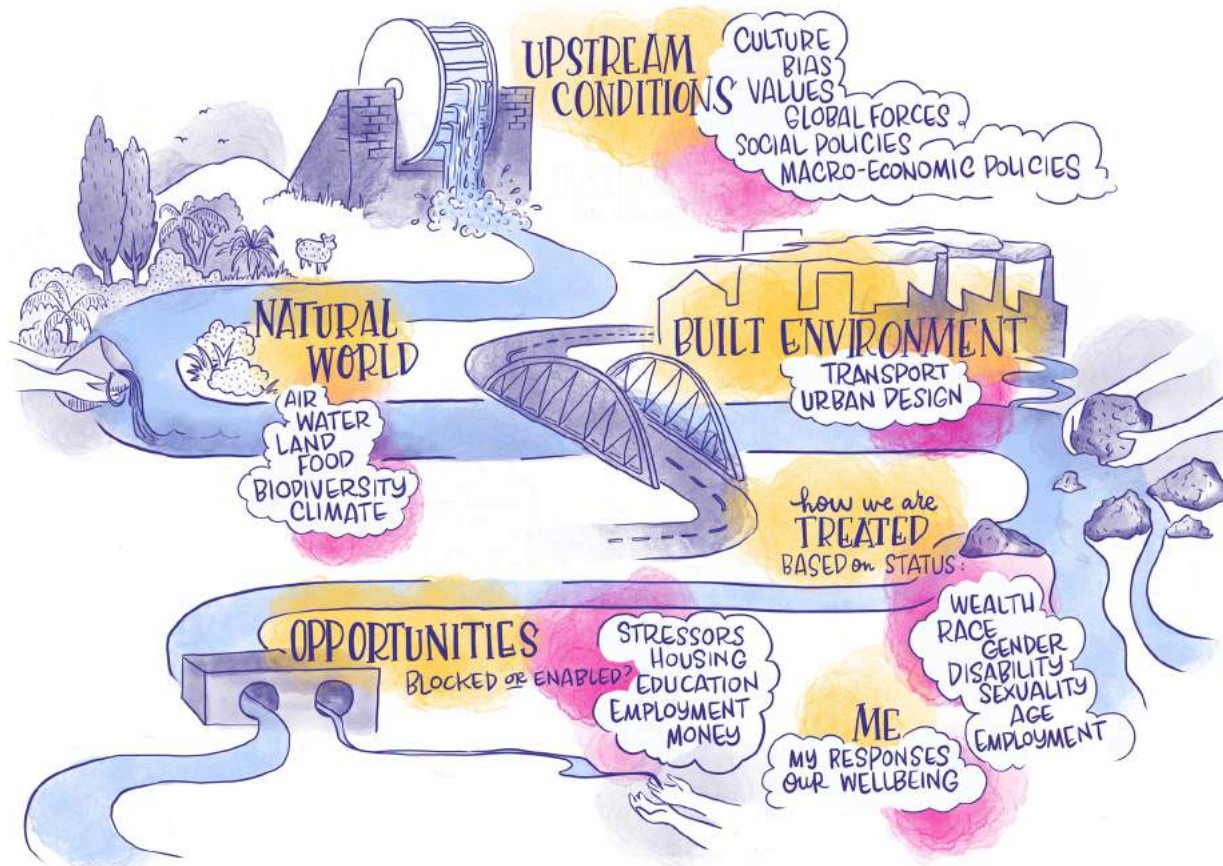 UPSTREAM
CONDITIONS
CULTURE
BIAS
VALUES
GLOBAL FORCES
SOCIAL POLICIES
MACRO-ECONOMIC POLICIES
NATURAL
WORLD
AIR
WATER
LAND
FOOD
BIODIVERSITY
CLIMATE
BUILT ENVIRONMENT
TRANSPORT
URBAN DESIGN
how we are
TREATED
BASED on STATUS:
WEALTH
RACE
GENDER
DISABILITY
SEXUALITY
AGE
EMPLOYMENT
OPPORTUNITIES
BLOCKED OR ENABLED?
STRESSORS
HOUSING
EDUCATION
EMPLOYMENT
MONEY
ME
MY RESPONSES
OUR WELLBEING